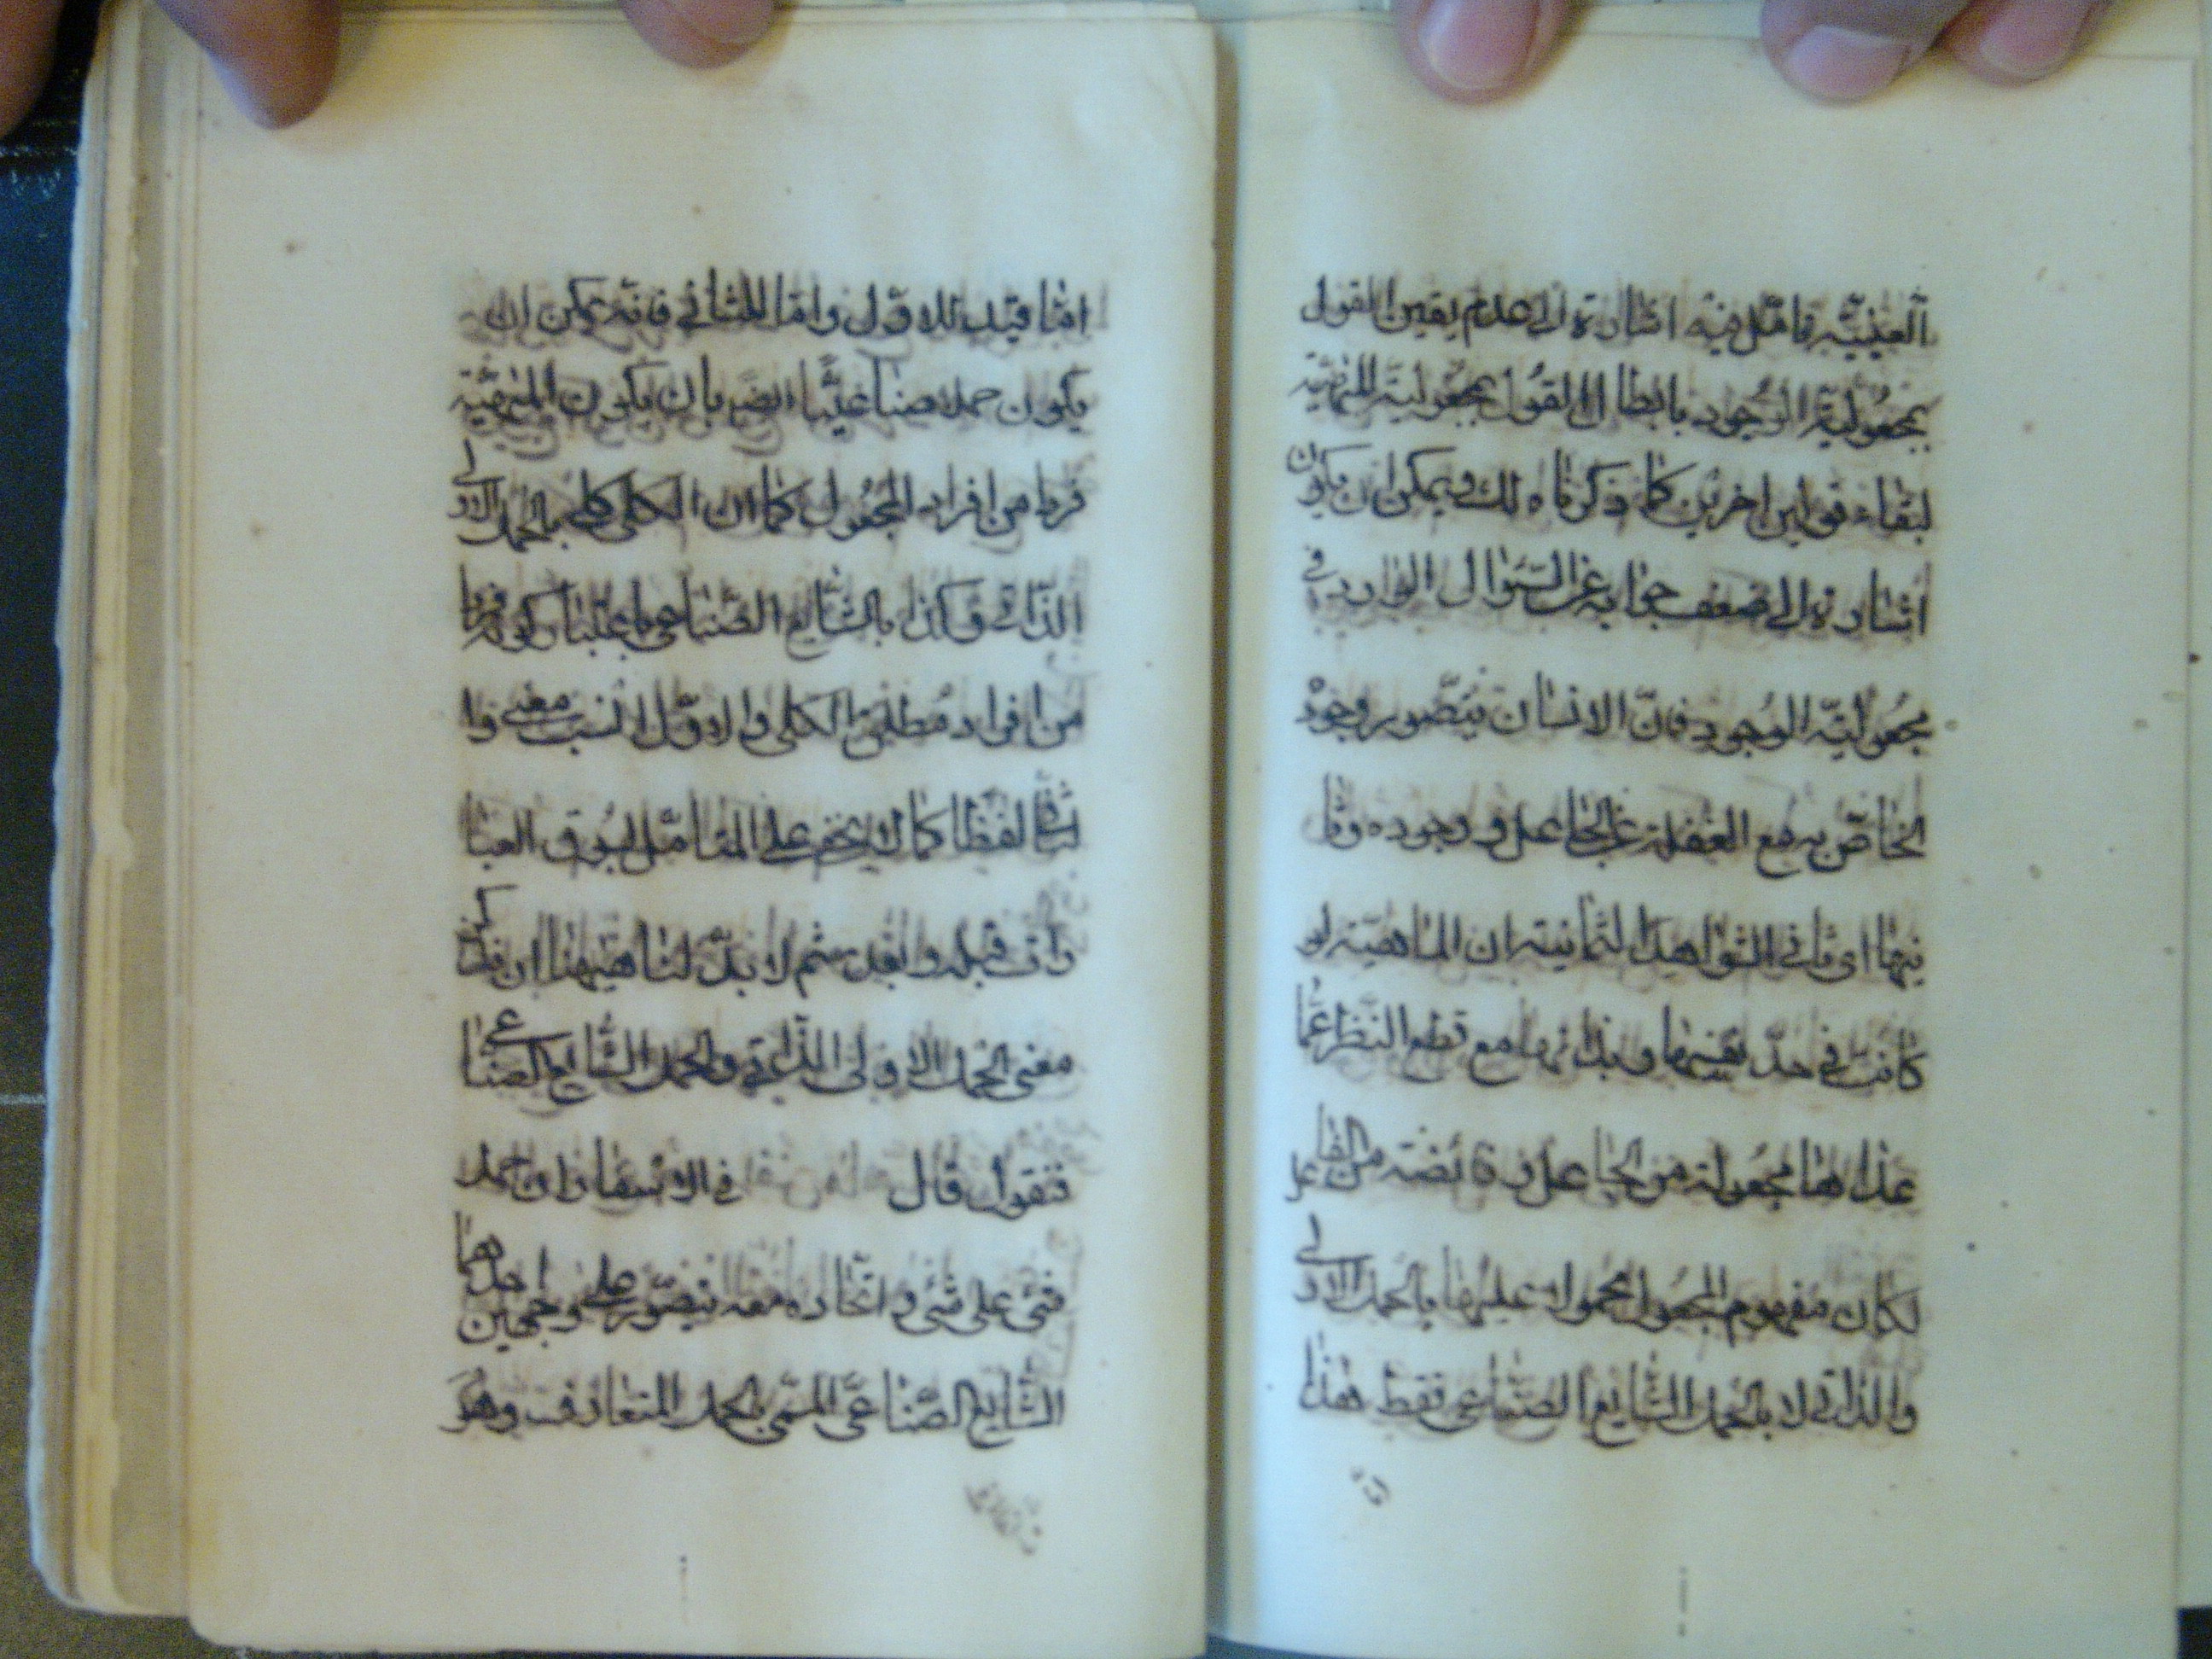 العينيّة فتأمّل فيه اشارة الى عدم يقين القول
بمجعولية الوجود بابطال القول بمجعولية المهيّة
لبقاء قولين اخرين كما ذكرنا لك ويمكن ان يكون
اشارة الى ضعف جوابه عن السؤال الوارد في
مجعوليّة الوجود فانّ الانسان يتصور وجود
الخاصّ مع الغفلة عن الجاعل و وجوده وقا
فيها اى في الشواهد الثمانية ان الماهيّة لو
كانت في حدّ نفسها وبذاتها مع قطع النظر عمّا
عداها مجعولة من الجاعل و فائضة من الفاعل
لكان مفهوم المجعول محمولا عليها بالحمل الاولى
والذاتي لا بالحمل الشايع الصناعى فقط هذا
امّا قيد للاوّل وامّا للثاني فانه يمكن ان
يكون حملا صناعيّا ايضا بان يكون المهيّة
فردا من افراد المجعول كما ان الكلى كلى بالحمل الاولى
الذاتي وكذا بالشايع الصناعى
من افراد مطلق الكلى والاوّل انسب معنى وا
لثانى لفظا كما لا يخفى على المتامّل لسوق العبا
رات قبله وبعد ثم لا بدّ لنا هيهنا ان نذكر
معنى الحمل الاولى الذاتي والحمل الشايع الصناعى
فنقول قال في الاسفار ان حمل
شئ على شئ واتحاده معه يتصوّر على وجهين احدهما
الشايع الصناعىّ المسمّى بالحمل المتعارف وهو